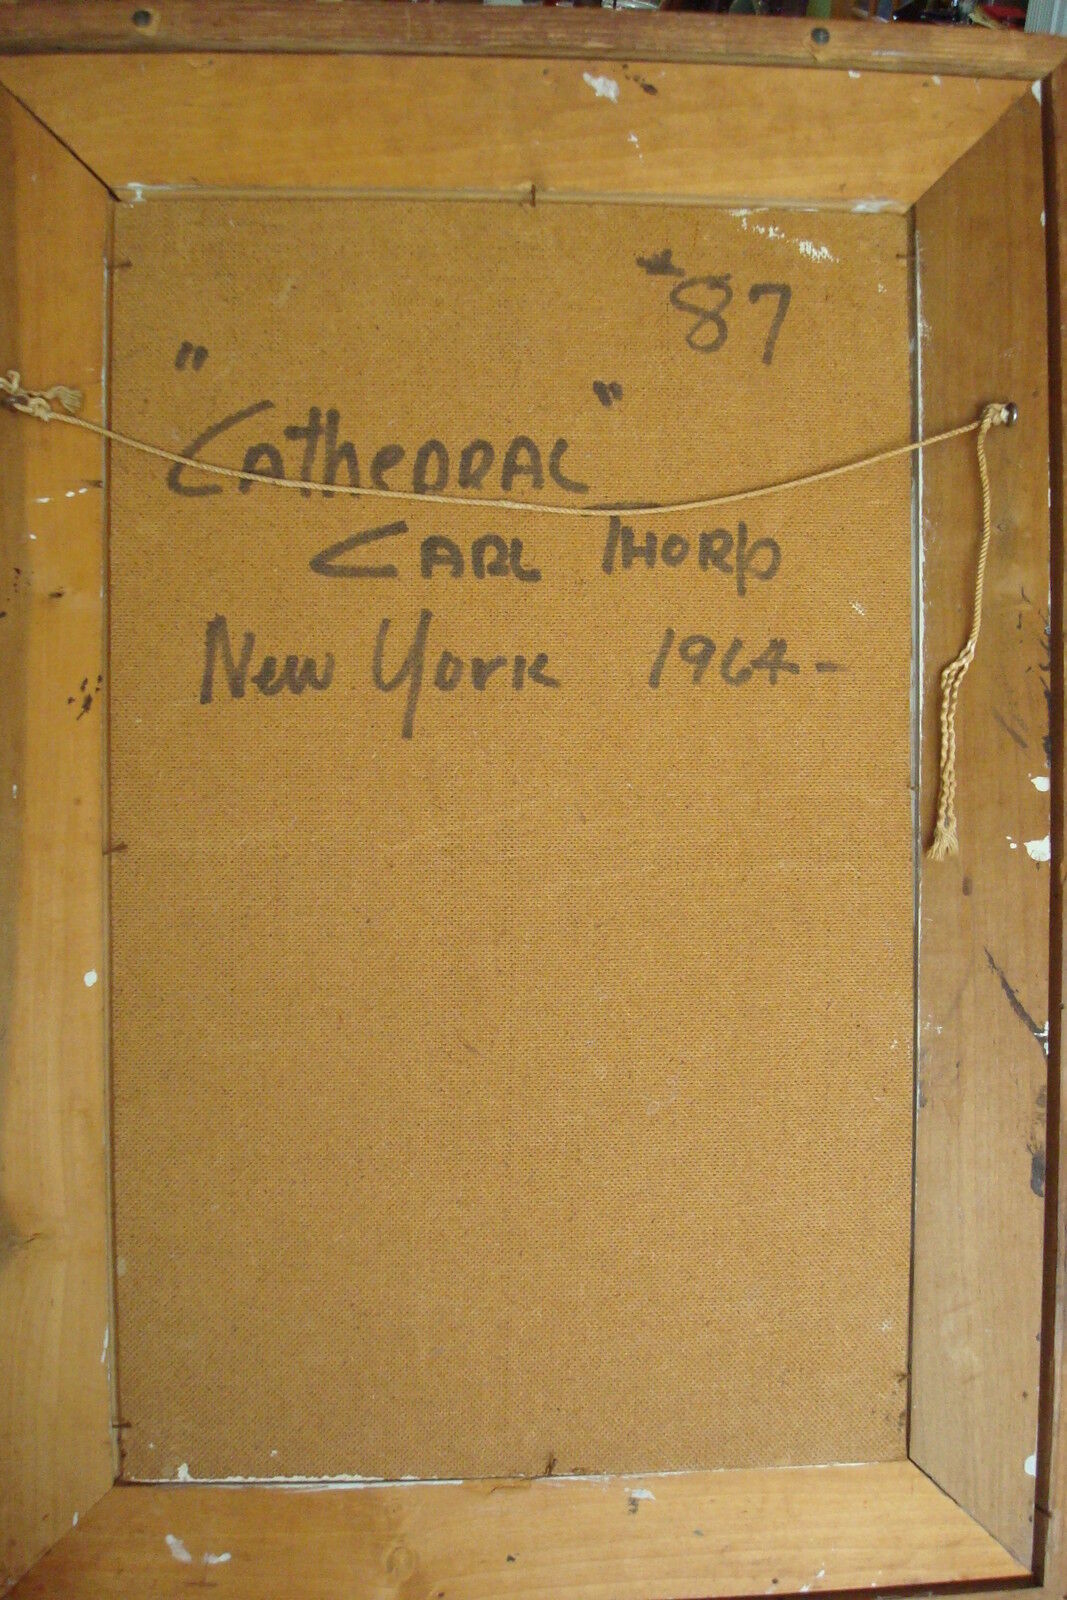 #87
"Cathedral"
Carl Thorp
New York 1964-